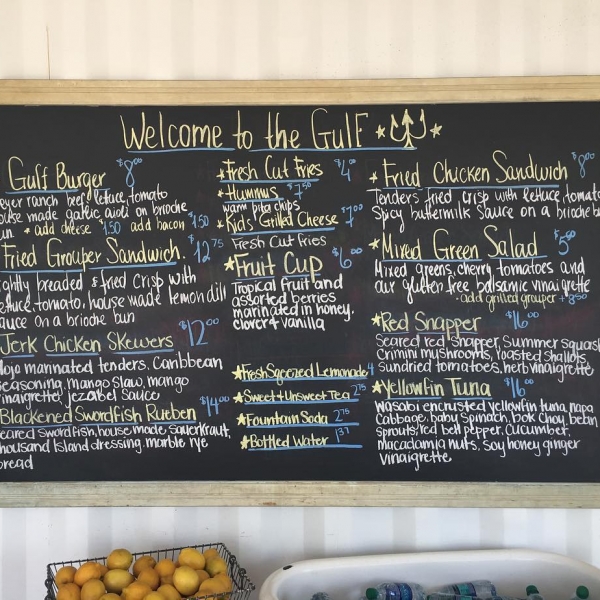 Welcome to the Gulf
Gulf Burger $8.00
eyer ranch beef, lettuce, tomato
ouse made garlic aioli on brioche
un * add cheese $1.50 add bacon $1.50
Fried Grouper Sandwich $12.75
ghtly breaded & fried crisp with
lettuce, tomato, house made lemon dill
auce on a brioche bun
Jerk Chicken Skewers $12.00
Mojo marinated tenders, Caribbean
seasoning, mango slaw, mango
vinaigrette, jezabel sauce
Blackened Swordfish Rueben $14.00
seared swordfish, house made sauerkraut,
thousand island dressing, marble rye
bread
Fresh Cut Fries $4.00
Hummus $7.50
warm pita chips
Kids Grilled Cheese $7.00
Fresh Cut Fries
Fruit Cup $6.00
Tropical fruit and
assorted berries
marinated in honey,
clover & vanilla
Fresh Sqeezed Lemonade 4
Sweet + Unsweet Tea 2.75
Fountain Soda 2.75
Bottled Water 1.37
Fried Chicken Sandwich $8.00
Tenders fried crisp with lettuce, tomato
Spicy buttermilk sauce on a brioche bu
Mixed Green Salad $5.00
Mixed greens, cherry tomatoes and
our gluten free balsamic vinaigrette
- add grilled grouper + 8.50
Red Snapper $16.00
Seared red snapper, summer squash
Crimini mushrooms, roasted shallots,
sundried tomatoes, herb vinaigrette
Yellowfin Tuna $16.00
Wasabi encrusted yellowfin tuna, napa
Cabbage, baby spinach, bok choy, bean
sprouts, red bell pepper, cucumber,
macadamia nuts, soy honey ginger
vinaigrette